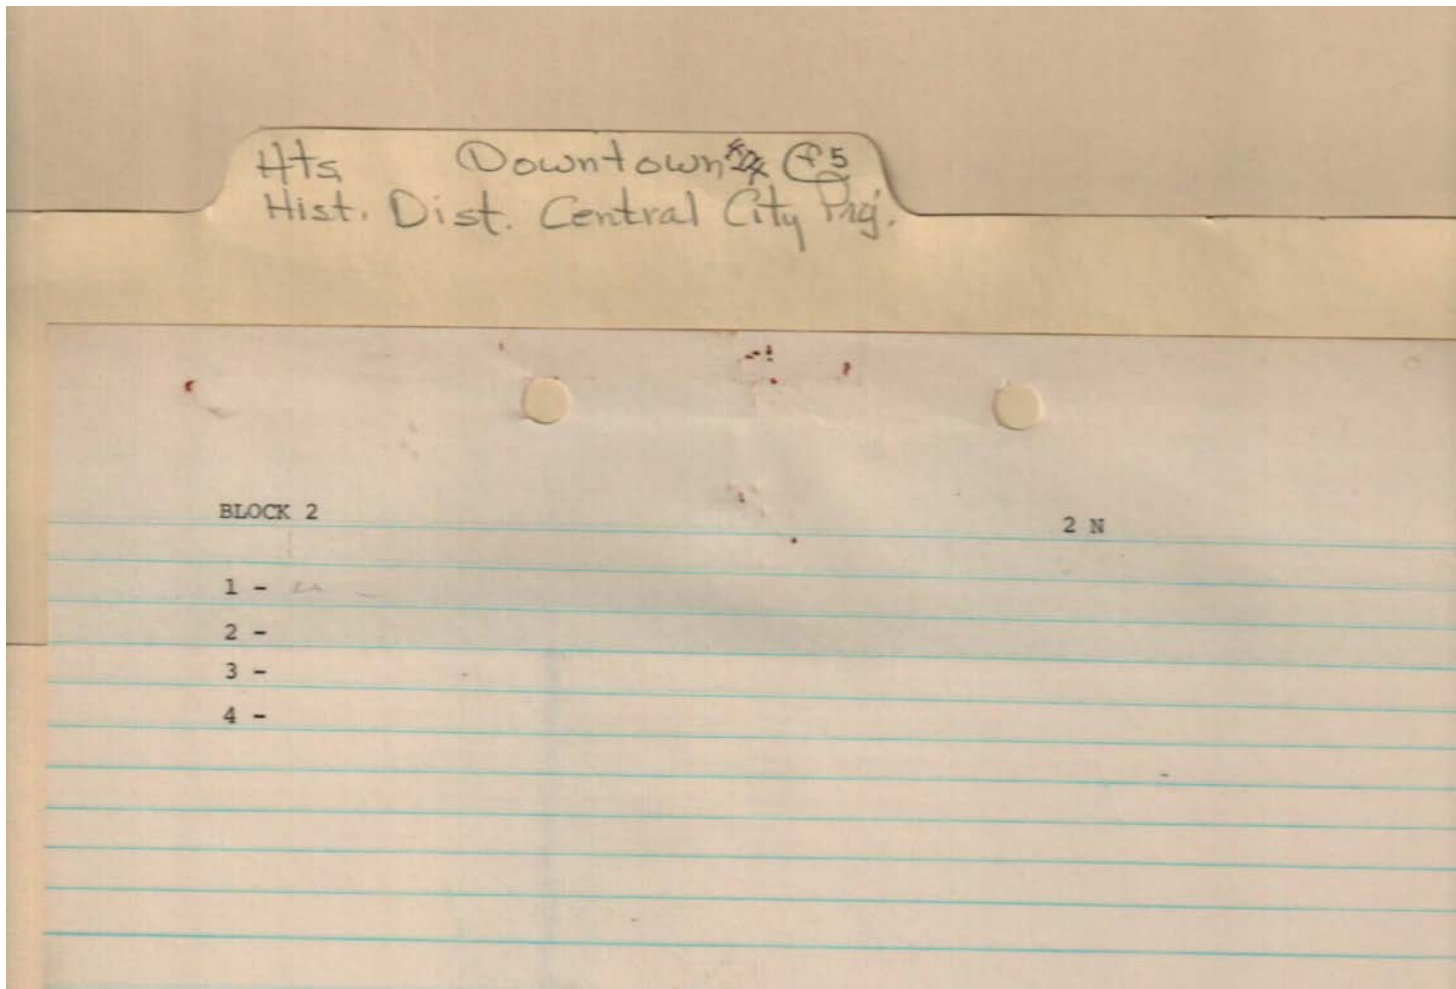 Hts Downtown
Hist. Dist. Central City Proj.
BLOCK 2 2 N
1 -
2 -
3 -
4 -